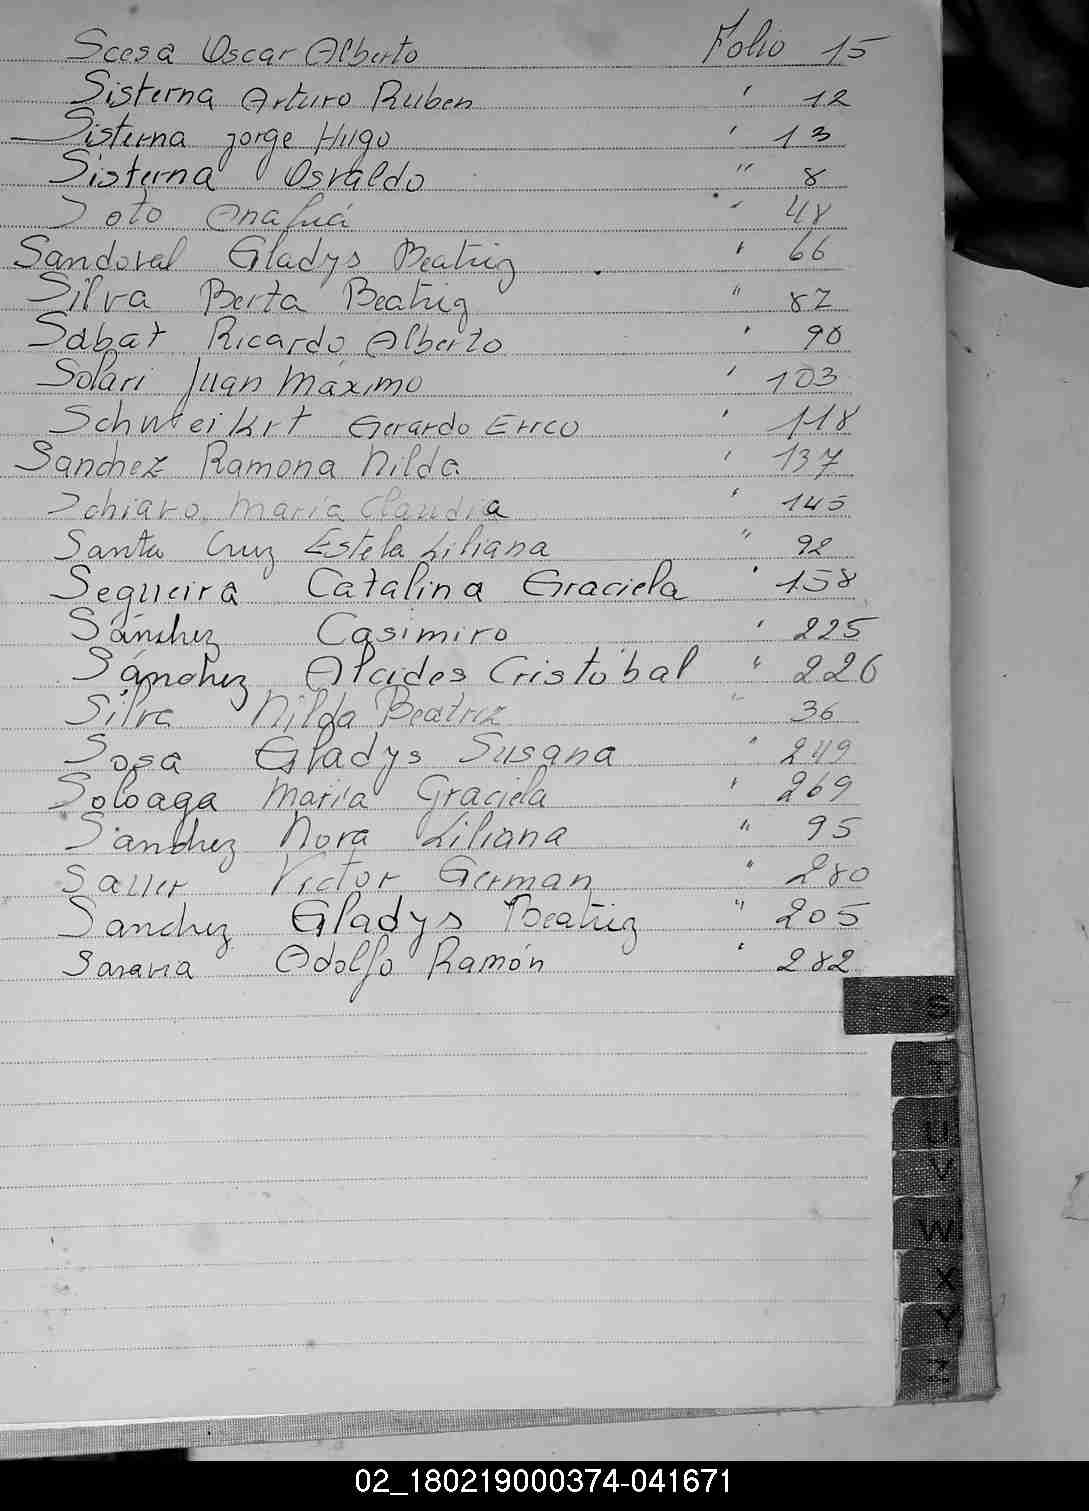 Scesa Oscar Alberto Folio 15
Sisterna Arturo Ruben " 12
Sisterna Jorge Hugo " 13
Sisterna Osvaldo " 8
Soto " 48
Sandoval Gladys Beatriz " 66
Silva Berta Beatriz " 87
Sabat Ricardo Alberto " 90
Solari Juan Máximo " 103
Schweikrt Gerardo Erico " 118
Sanchez Ramona Nilda " 137
Schiavo, María Claudia " 145
Santa Cruz Estela Liliana " 92
Segueira Catalina Graciela " 158
Sánchez Casimiro " 225
Sánchez Alcides Cristóbal " 226
Silva Nilda Beatriz " 36
Sosa Gladys Susana " 249
Soloaga Maria Graciela " 269
Sanchez Nora Liliana " 95
Sauer Victor German " 280
Sanchez Gladys Beatriz " 205
Saravia Adolfo Ramón " 282
S
T
U
V
W
X
Y
Z
02_180219000374-041671